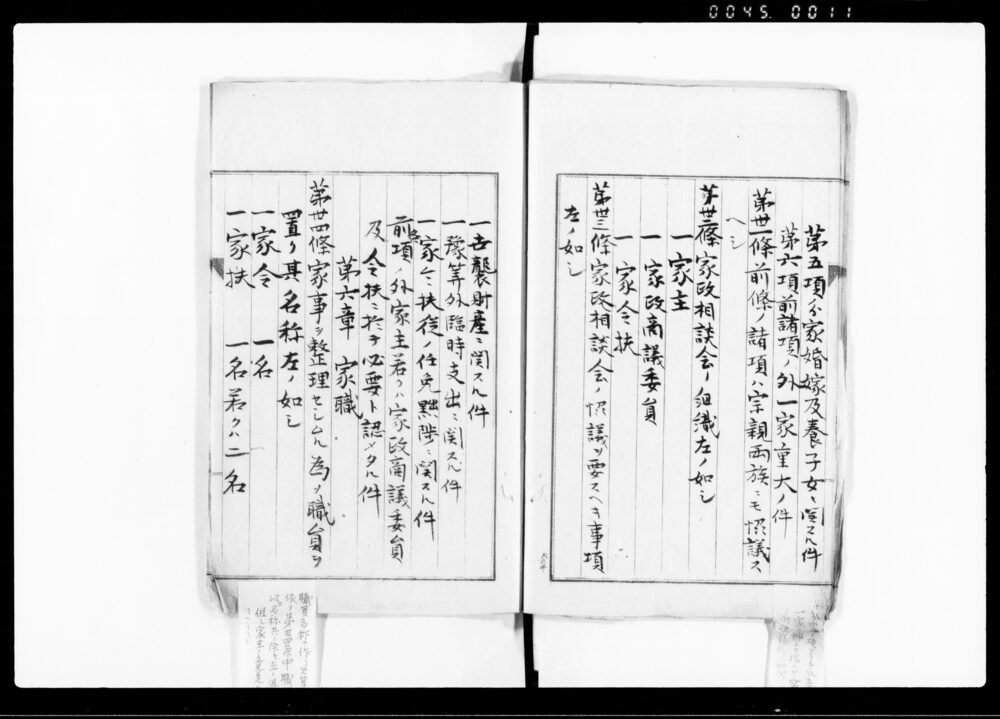 0045. 0011
第五項分家婚嫁及養子女ニ関スル件
第六項前諸項ノ外一家重大ノ件
第卅一條前條ノ諸項ハ宗親両族ニモ協議ス
ヘシ
第卅二條家政相談会ノ組織左ノ如シ
一家主
一家政商議委員
一家令扶
第卅三條家政相談会ノ協議ヲ要スヘキ事項
左ノ如シ
一世襲財産ニ関スル件
一豫算外臨時支出ニ関スル件
一家令扶従ノ任免黜陟ニ関スル件
前項ノ外家主若クハ家政商議委員
及令扶ニ於テ必要ト認メタル件
第六章 家職
第卅四條家事ヲ整理セシムル為メ職員ヲ
置ク其名称左ノ如シ
一家令 一名
一家扶 一名若クハ二名